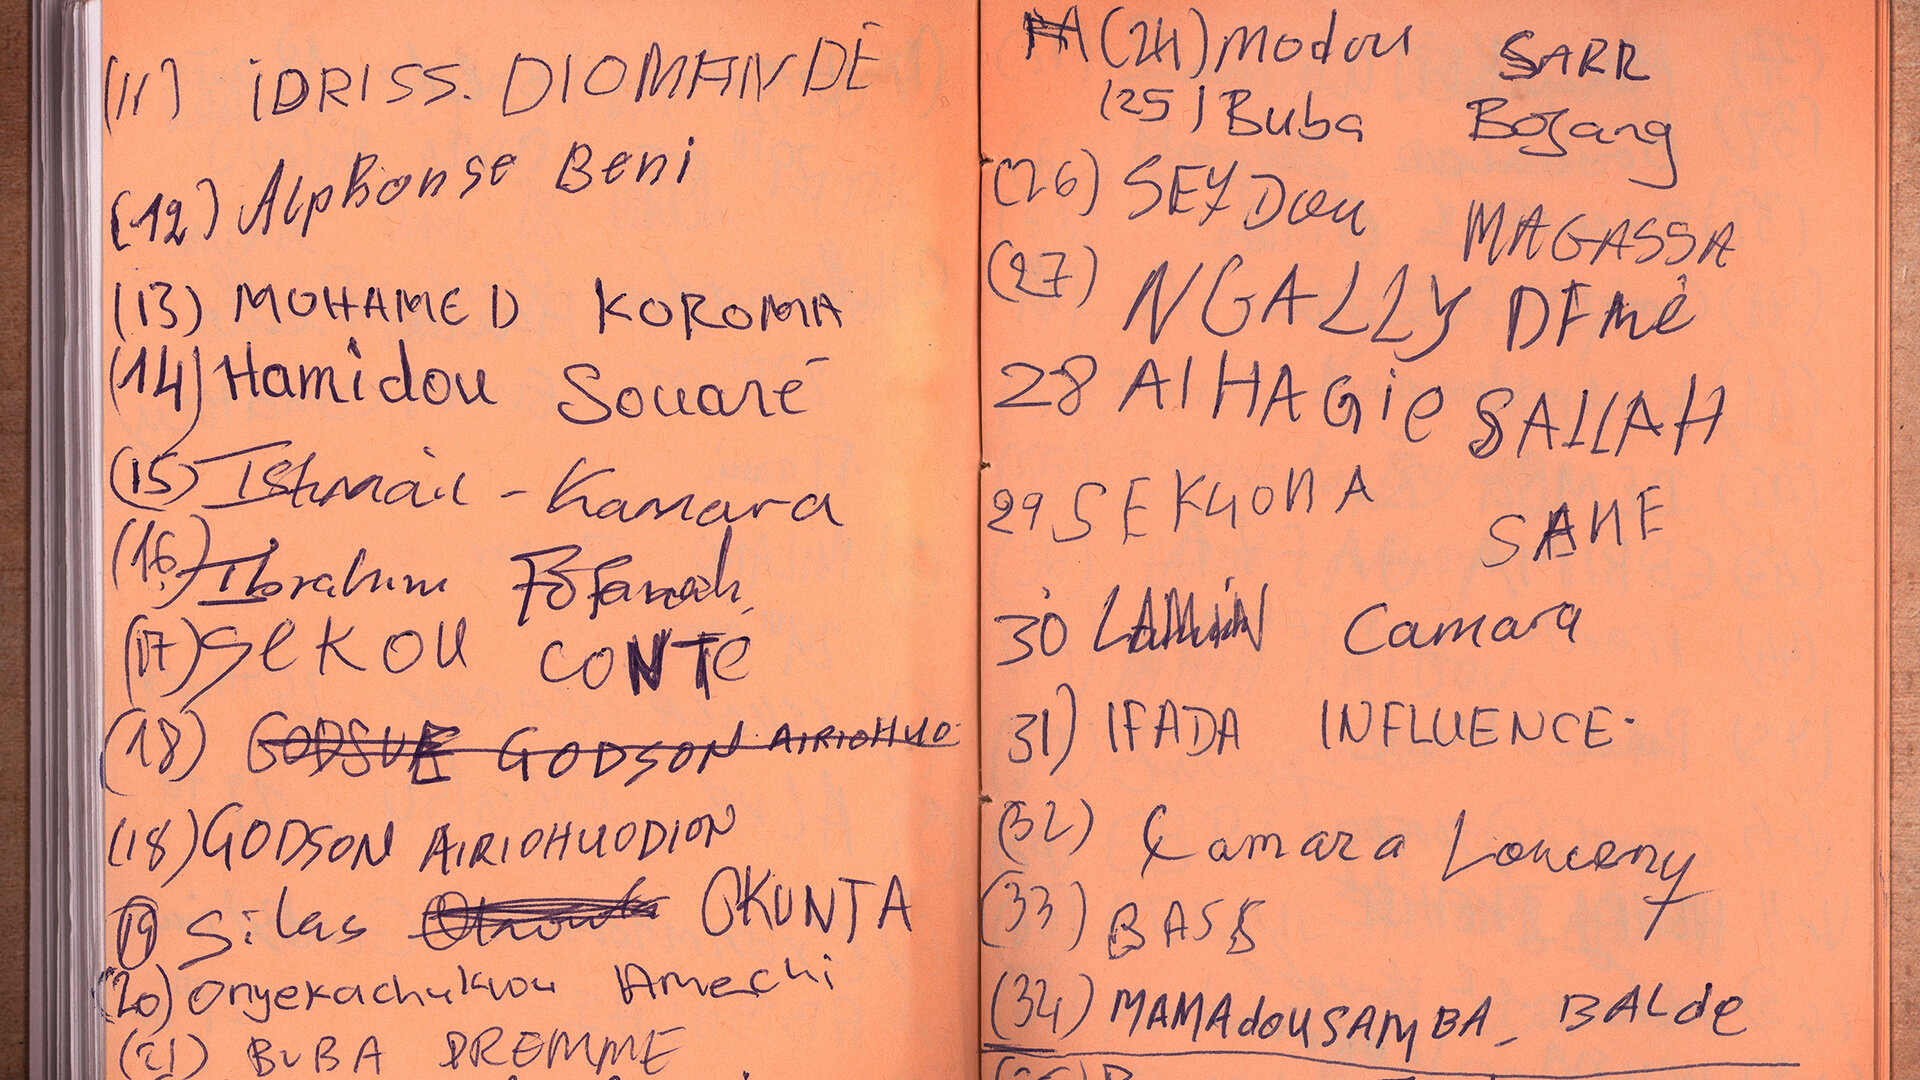 (11) iDRISS. DIOMANDÉ
(12) Alphonse Beni
(13) MOHAMED KOROMA
(14) Hamidou Souaré
(15) Ishmail - Kamara
(16) Ibrahim Fofanah
(17) SeKOU CONTÉ
(18) GODSON AIRIOHUO
(18) GODSON AIRIOHUODION
19 Silas OKUNTA
(20) Onyekachukwu Amechi
(21) BUBA DREMME
(24) Modou SARR
(25) Buba Bojang
(26) SEYDou MAGASSA
(27) NGALLY DEMé
28 AlHAGie SALLAH
29 SEKUONA SANE
30 LAMiN Camara
31) IFADA INFLUENCE.
(32) Camara Lonceny
(33) BASS
(34) MAMAdOUSAMBA - BALde